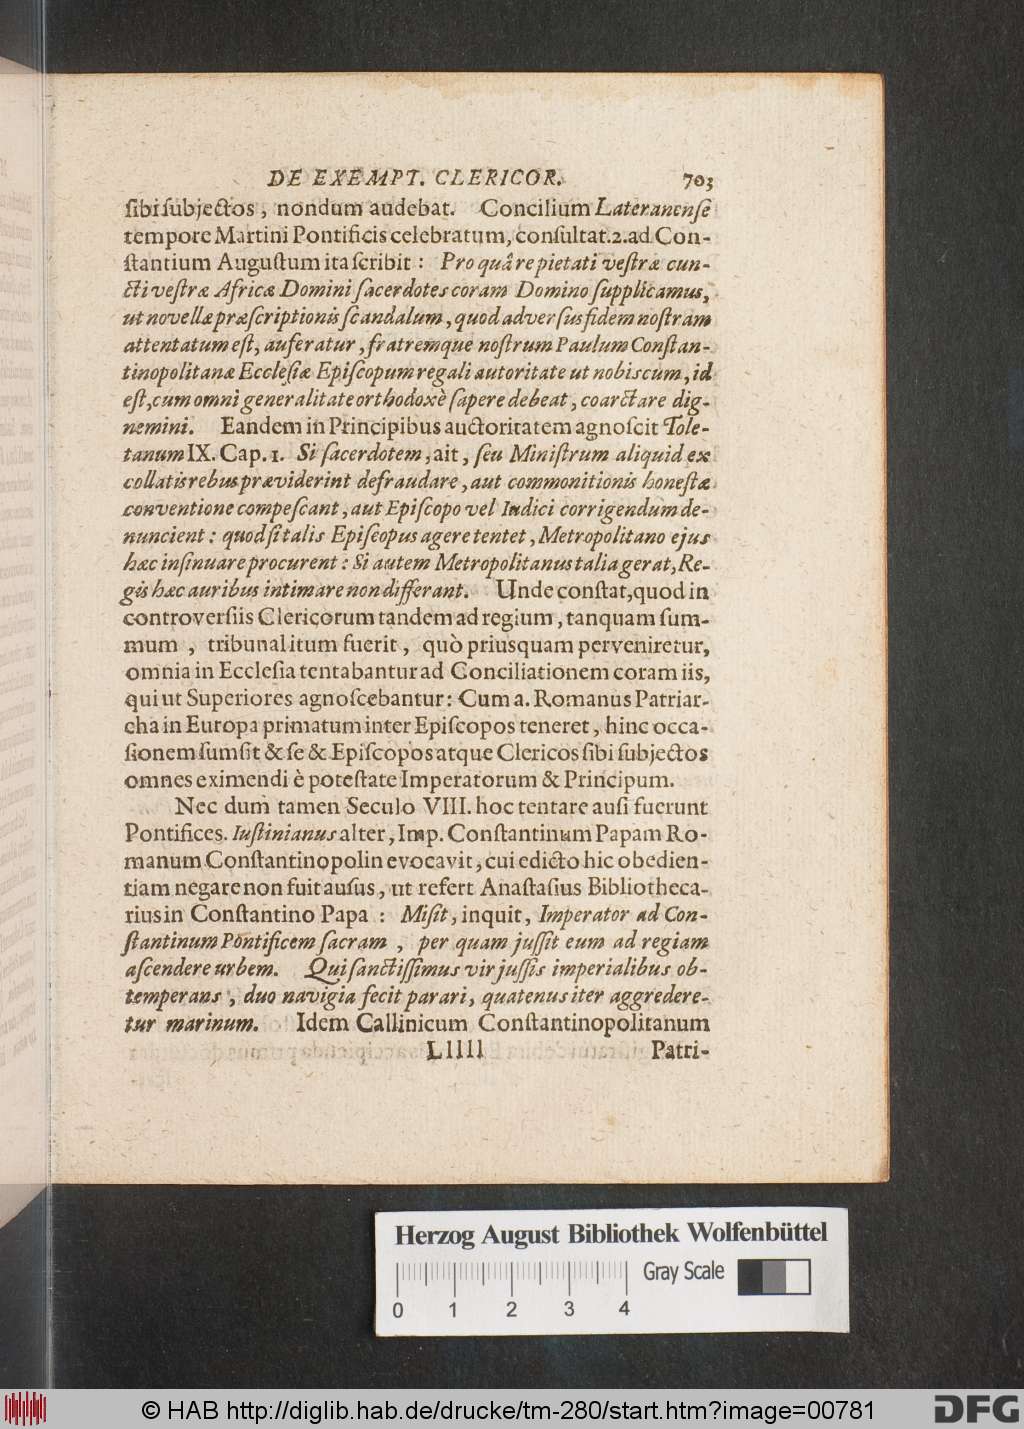 DE EXEMPT. CLERICOR. 703
ſibi ſubjectos, nondum audebat. Concilium Lateranenſe
tempore Martini Pontificis celebratum, conſultat. 2. ad Con-
ſtantium Auguſtum ita ſcribit: Pro quâ re pietati veſtræ cun-
cti veſtræ Africæ Domini ſacerdotes coram Domino ſupplicamus,
ut novellæ præſcriptionis ſcandalum, quod adverſus fidem noſtram
attentatum eſt, auferatur, fratremque noſtrum Paulum Conſtan-
tinopolitanæ Eccleſiæ Epiſcopum regali autoritate ut nobiscum, id
eſt, cum omni generalitate orthodoxè ſapere debeat, coarctare dig-
nemini. Eandem in Principibus auctoritatem agnoſcit Tole-
tanum IX. Cap. 1. Si ſacerdotem, ait, ſeu Miniſtrum aliquid ex
collatis rebus præviderint defraudare, aut commonitionis honeſtæ
conventione compeſcant, aut Epiſcopo vel Iudici corrigendum de-
nuncient: quod ſi talis Epiſcopus agere tentet, Metropolitano ejus
hæc inſinuare procurent: Si autem Metropolitanus talia gerat, Re-
gis hæc auribus intimare non differant. Unde conſtat, quod in
controverſiis Clericorum tandem ad regium, tanquam ſum-
mum, tribunal itum fuerit, quò priusquam perveniretur,
omnia in Eccleſia tentabantur ad Conciliationem coram iis,
qui ut Superiores agnoſcebantur: Cum a. Romanus Patriar-
cha in Europa primatum inter Epiſcopos teneret, hinc occa-
ſionem ſumſit & ſe & Epiſcopos atque Clericos ſibi ſubjectos
omnes eximendi è poteſtate Imperatorum & Principum.
Nec dum tamen Seculo VIII. hoc tentare auſi fuerunt
Pontifices. Iuſtinianus alter, Imp. Conſtantinum Papam Ro-
manum Conſtantinopolin evocavit, cui edicto hic obedien-
tiam negare non fuit auſus, ut refert Anaſtaſius Bibliotheca-
rius in Conſtantino Papa: Miſit, inquit, Imperator ad Con-
ſtantinum Pontificem ſacram, per quam juſſit eum ad regiam
aſcendere urbem. Qui ſanctiſſimus vir juſſis imperialibus ob-
temperans, duo navigia fecit parari, quatenus iter aggredere-
tur marinum. Idem Callinicum Conſtantinopolitanum
Lllll Patri-
Herzog August Bibliothek Wolfenbüttel
Gray Scale
0 1 2 3 4
© HAB http://diglib.hab.de/drucke/tm-280/start.htm?image=00781
DFG